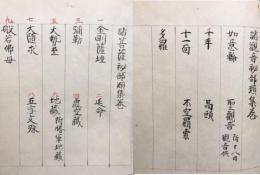 諸觀音秘部類集卷
如意輪
聖觀音
千手
馬頭
十一面
不空羂索
多羅
諸菩薩秘部類集卷
一金剛薩埵
二延命
三彌勒
四虚空藏
五大勢至
六地藏
七大随求
八五字文殊
九般若佛母